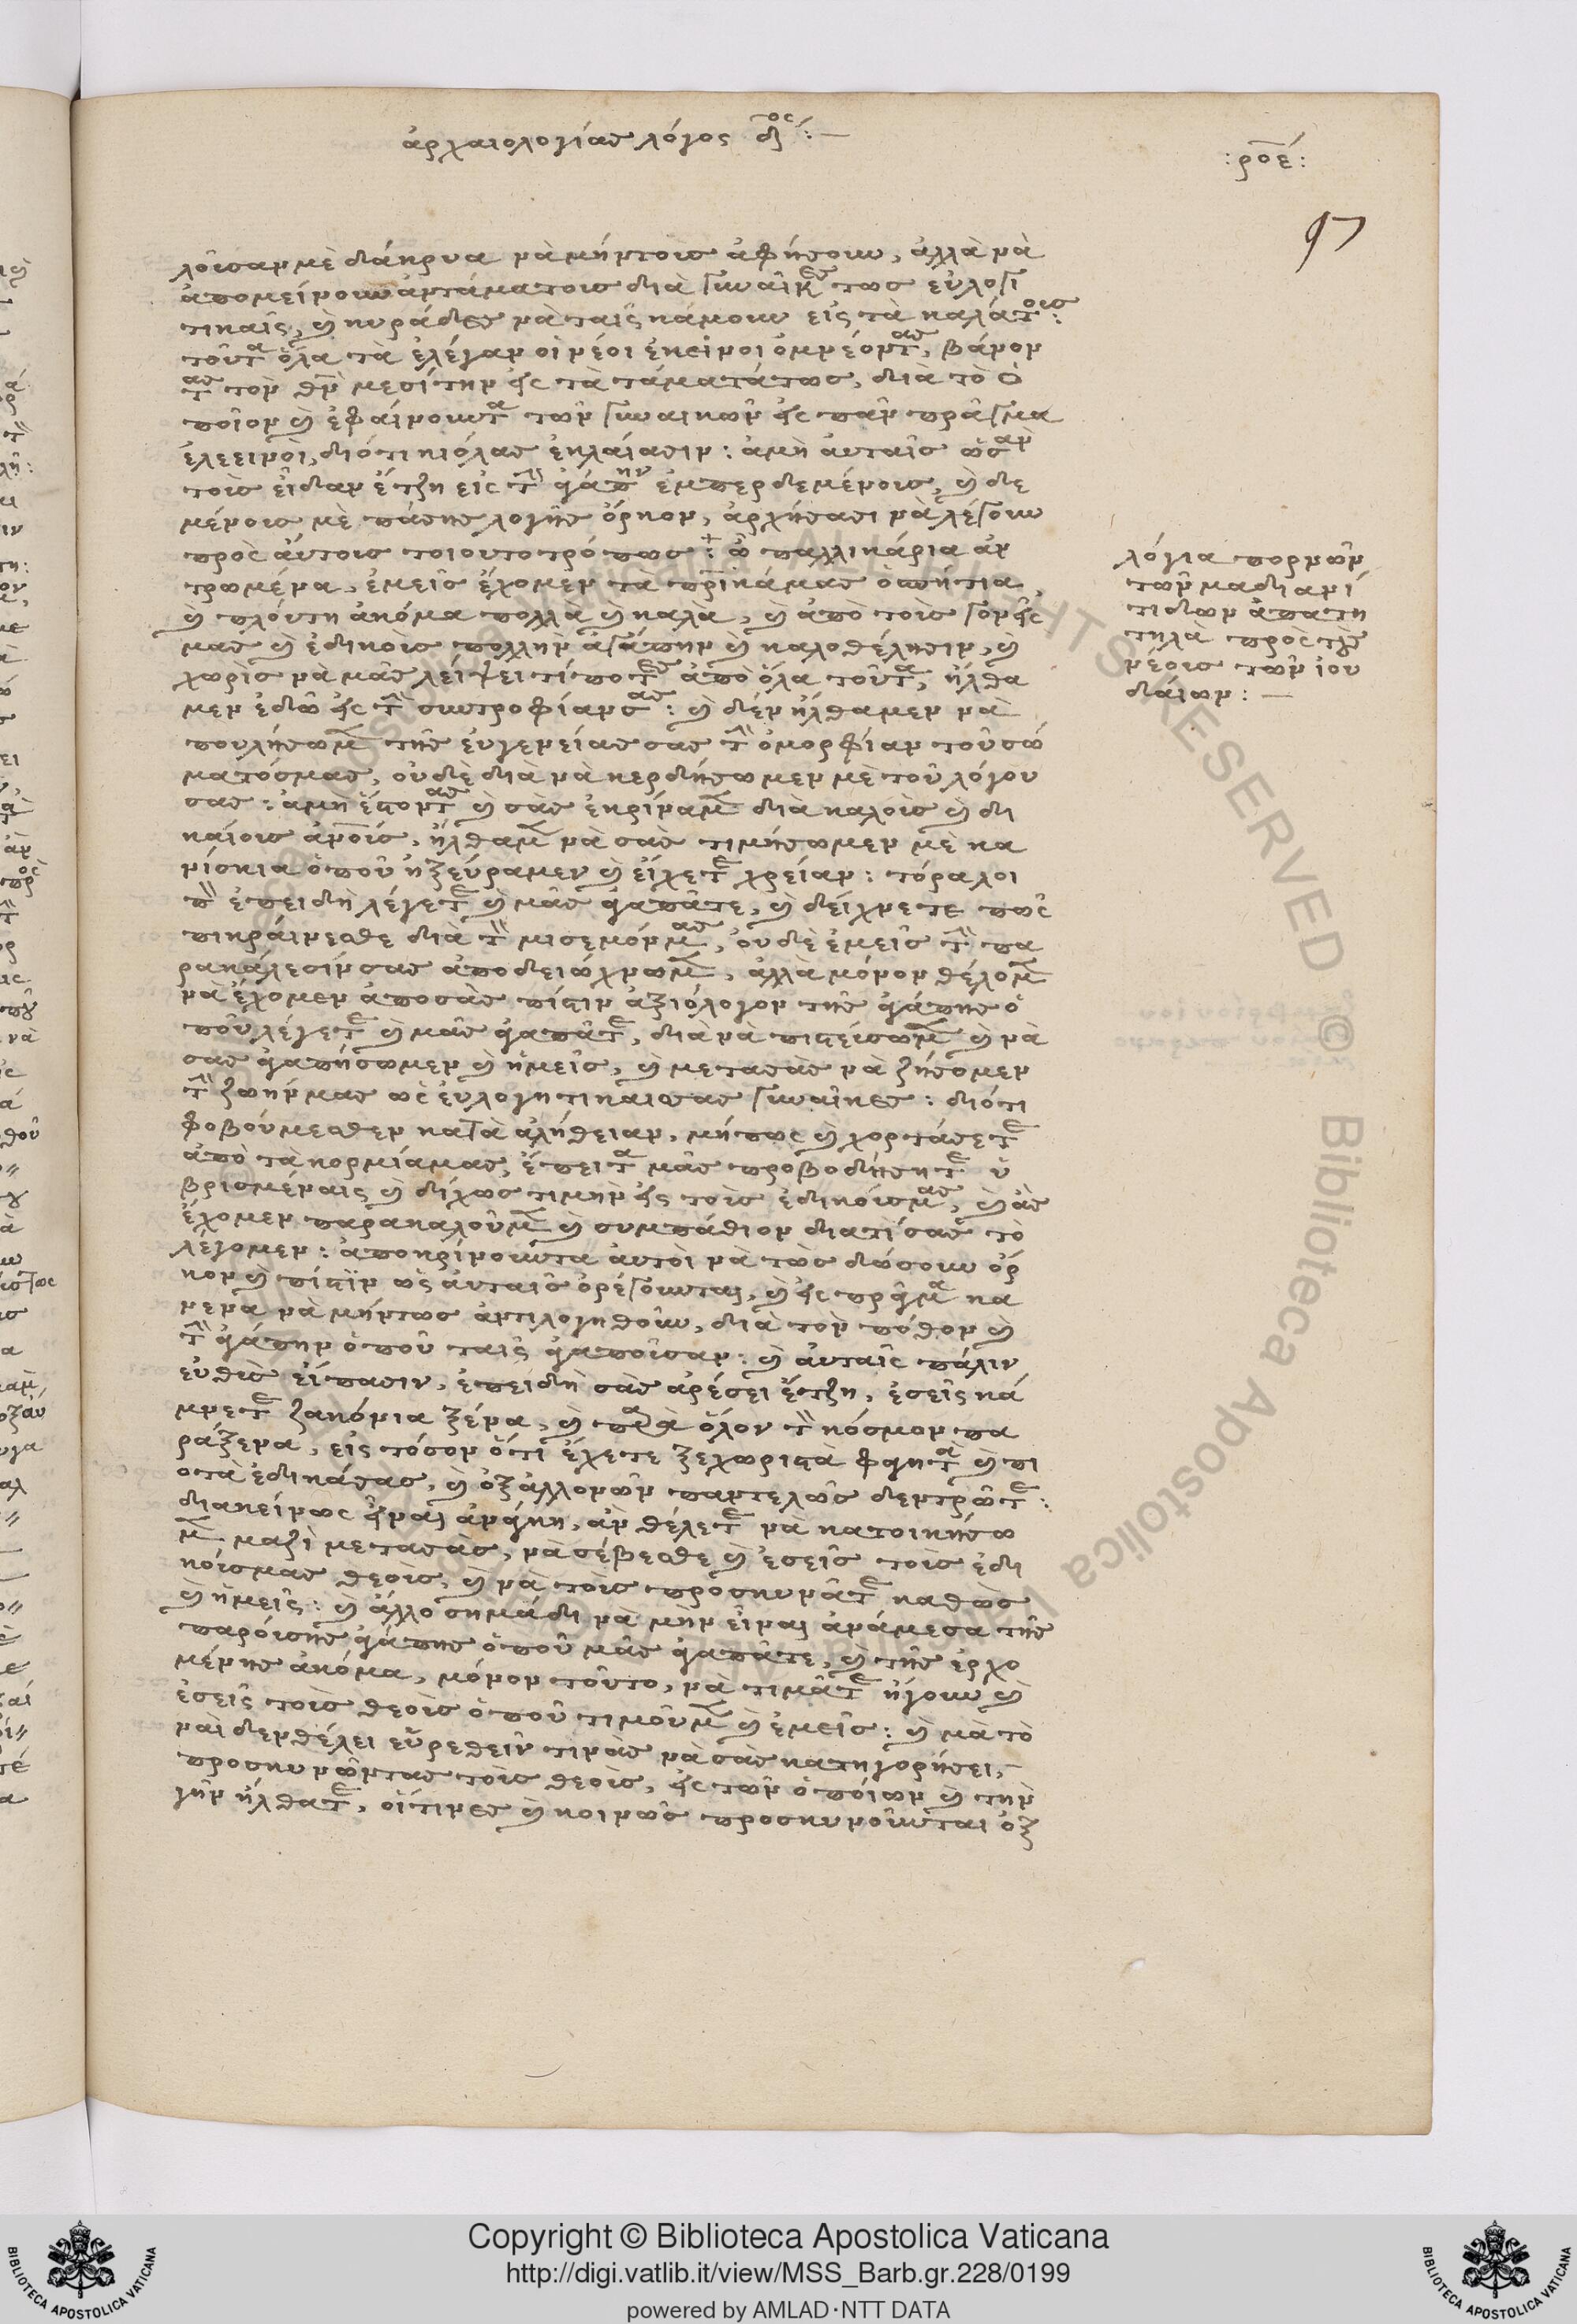 ἀρχαιολογίας λόγος δ^ος:—
:ροέ:
97
λοῦσαν μὲ δάκρυα νὰ μήν τοὺς ἀφήσουν, ἀλλὰ νὰ
ἀπομείνουν ἀντάμα τους διὰ γυναῖκες τως εὐλογη
τικαῖς, καὶ κυράδες νὰ ταῖς κάμουν εἰς τὰ καλά τους:
τοῦτα ὅλα τὰ ἐλέγαν οἱ νέοι ἐκεῖνοι ὀμνέοντας, βάνον
τας τὸν θν̅ μεσίτην εἰς τὰ τάματά τως, διὰ τὸ ὁ
ποῖον καὶ ἐφαίνουντα τῶν γυναικῶν εἰς πᾶν πρᾶγμα
ἐλεεινοὶ, διότι κιόλας ἐκλαίασιν: ἀμὴ αὐταῖς ὡσὰν
τοὺς εἶδαν ἔτζη εἰς τὴν ἀγάπην ἐμπερδεμένους, καὶ δε
μένους μὲ πάσης λογῆς ὅρκον, ἀρχήσασι νὰ λέγουν
πρὸς αὐτοὺς τοιουτοτρόπως: ὦ παλλικάρια ἀν
τρωμένα, ἐμεῖς ἔχομεν τὰ πρικά μας ὁσπήτια,
καὶ πλούτη ἀκόμα πολλὰ καὶ καλὰ, καὶ ἀπὸ τοὺς γονεῖς
μας καὶ ἐδικοὺς πολλὴν ἀγάπην καὶ καλοθέλησιν, καὶ
χωρὶς νὰ μᾶς λείψει τίποτες ἀπὸ ὅλα τοῦτα, ἤλθα
μεν ἐδῶ εἰς τὴν συντροφίαν σας: καὶ δὲν ἤλθαμεν νὰ
πουλήσωμεν τῆς εὐγενείας σας τὴν ὀμορφίαν τοῦ σώ
ματός μας, οὐδὲ διὰ νὰ κερδήσωμεν μὲ τοῦ λόγου
σας: ἀμὴ ἔστοντας καὶ σᾶς ἐκρίναμεν διὰ καλοὺς καὶ δι
καίους ἀνους, ἤλθαμεν νὰ σᾶς τιμήσωμεν μὲ κα
νίσκια ὁποῦ ἠξεύραμεν καὶ εἴχετε χρείαν: τόρα λοι
πὸν ἐπειδὴ λέγετε καὶ μᾶς ἀγαπᾶτε, καὶ δείχνετε πῶς
πικραίνεσθε διὰ τὸν μισεμόν μας, οὐδὲ ἐμεῖς τὴν πα
ρακάλεσίν σας ἀποδειώχνωμεν, ἀλλὰ μόνον θέλομεν
νὰ ἔχομεν ἀπὸ σᾶς πίστιν ἀξιόλογον τῆς ἀγάπης ὁ
ποῦ λέγετε καὶ μᾶς ἀγαπᾶτε, διὰ νὰ πιστεύσωμεν καὶ νὰ
σᾶς ἀγαπήσωμεν καὶ ἡμεῖς, καὶ μετὰ σᾶς νὰ ζήσομεν
τὴν ζωήν μας ὡς εὐλογητικαῖς σας γυναῖκες: διότι
φοβούμεσθεν κατὰ ἀλήθειαν, μήπως καὶ χορτάσετε
ἀπὸ τὰ κορμία μας, ἔπειτα μᾶς προβοδήσητε ὑ
βρισμέναις καὶ δίχως τιμὴν εἰς τοὺς ἐδικούς μας, καὶ ἂς
ἔχομεν παρακαλοῦμεν καὶ συμπάθιον διατὶ σᾶς τὸ
λέγομεν: ἀποκρίνουντα αὐτοὶ νὰ τῶς δώσουν ὅρ
κον καὶ πίστιν ὡς αὐταῖς ὀρέγουνται, καὶ εἰς πρᾶγμα κα
νένα νὰ μήν τως ἀντιλογηθοῦν, διὰ τὸν πόθον καὶ
τὴν ἀγάπην ὁποῦ ταῖς ἀγαποῦσαν: καὶ αὐταῖς πάλιν
εὐθὺς εἴπασιν, ἐπειδὴ σᾶς ἀρέσει ἔτζη, ἐσεῖς κά
μνετε ζακόνια ξένα, καὶ παρὰ ὅλον τὸν κόσμον πα
ράξενα, εἰς τόσον ὅτι ἔχετε ξεχωριστὰ φαγητὰ καὶ πι
οτὰ ἐδικά σας, καὶ ὀξ ἀλλονῶν παντελῶς δεν τρῶτε:
διακείνως εἶναι ἀνάγκη, ἂν θέλετε νὰ κατοικήσω
μεν μαζὶ μετὰ σᾶς, νὰ σέβεσθε καὶ ἐσεῖς τοὺς ἐδι
κούς μας θεοὺς, καὶ νὰ τοὺς προσκυνᾶτε καθὼς
καὶ ἡμεῖς: καὶ ἄλλο σημάδι νὰ μὴν εἶναι ἀνάμεσα τῆς
παρούσης ἀγάπης ὁποῦ μᾶς ἀγαπᾶτε, καὶ τῆς ἐρχο
μένης ἀκόμα, μόνον τοῦτο, νὰ τιμᾶτε ἤγουν καὶ
ἐσεῖς τοὺς θεοὺς ὁποῦ τιμοῦμεν καὶ ἐμεῖς: καὶ μὰ τὸ
ναὶ δὲν θέλει εὑρεθεῖν τινὰς νὰ σᾶς κατηγορήσει,
προσκυνῶντας τοὺς θεοὺς, εἰς τῶν ὁποίων καὶ τὴν
γῆν ἤλθατε, οἵτινες καὶ κοινῶς προσκυνοῦνται ὀξ
λόγια πορνῶν
τῶν μαδιανί
τιδων ἀπατη
τηλὰ πρὸς τοὺς
νέους τῶν ἰου
δαίων:—
Copyright © Biblioteca Apostolica Vaticana
http://digi.vatlib.it/view/MSS_Barb.gr.228/0199
powered by AMLAD·NTT DATA
BIBLIOTECA APOSTOLICA VATICANA
BIBLIOTECA APOSTOLICA VATICANA